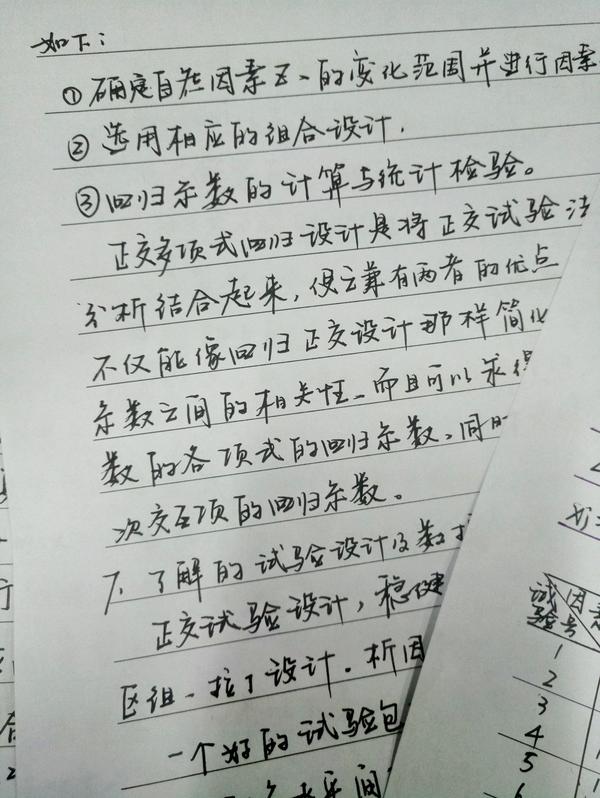 如下：
①确定自然因素Z、的变化范围并进行因素
②选用相应的组合设计．
③回归系数的计算与统计检验。
正交多项式回归设计是将正交试验法
分析结合起来，使之兼有两者的优点
不仅能像回归正交设计那样简化
系数之间的相关性、而且可以求得
数的各项式的回归系数、同时
次交互项的回归系数。
7．了解的试验设计及数据
正交试验设计，稳健
区组、拉丁设计．析因
一个好的试验包
间
试验号 因素
1
2
3
4
5
6